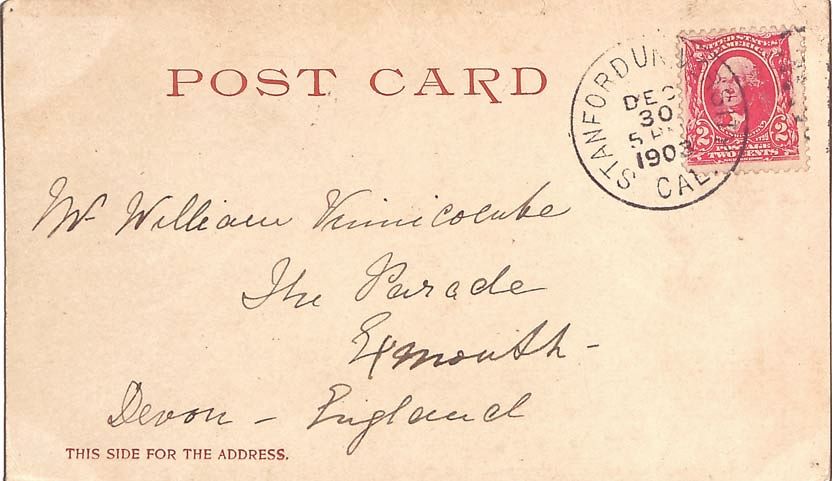 POST CARD
STANFORD UNIVERSITY
DEC
30
5
1903
CAL.
UNITED STATES
OF AMERICA
2 2
POSTAGE
TWO CENTS
Mr William Vinnicombe
The Parade
Exmouth -
Devon - England
THIS SIDE FOR THE ADDRESS.